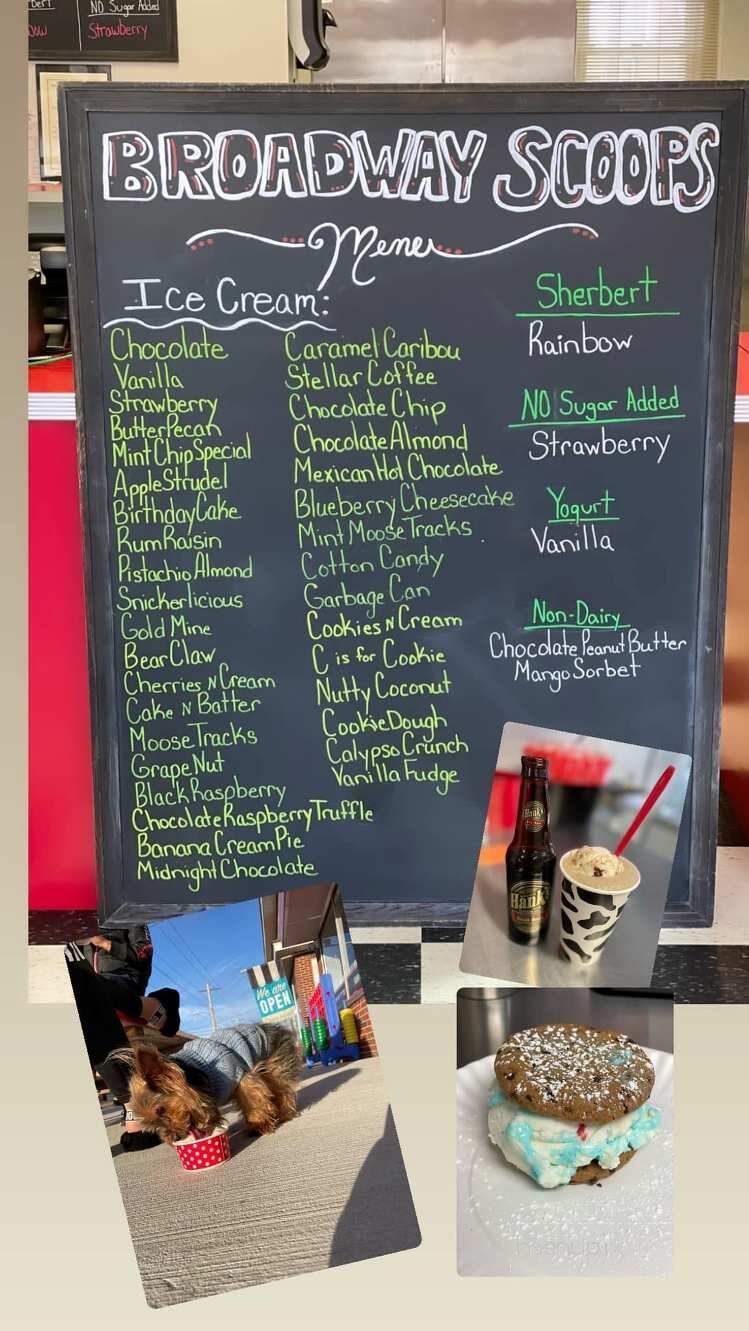 NO Sugar Added
Strawberry
BROADWAY SCOOPS
Menu
Ice Cream:
Chocolate
Vanilla
Strawberry
Butter Pecan
Mint Chip Special
Apple Strudel
Birthday Cake
Rum Raisin
Pistachio Almond
Snickerlicious
Gold Mine
Bear Claw
Cherries N Cream
Cake N Batter
Moose Tracks
Grape Nut
Black Raspberry
Chocolate Raspberry Truffle
Banana Cream Pie
Midnight Chocolate
Caramel Caribou
Stellar Coffee
Chocolate Chip
Chocolate Almond
Mexican Hot Chocolate
Blueberry Cheesecake
Mint Moose Tracks
Cotton Candy
Garbage Can
Cookies N Cream
C is for Cookie
Nutty Coconut
Cookie Dough
Calypso Crunch
Vanilla Fudge
Sherbert
Rainbow
NO Sugar Added
Strawberry
Yogurt
Vanilla
Non-Dairy
Chocolate Peanut Butter
Mango Sorbet
Hank's
Hank's
We are
OPEN